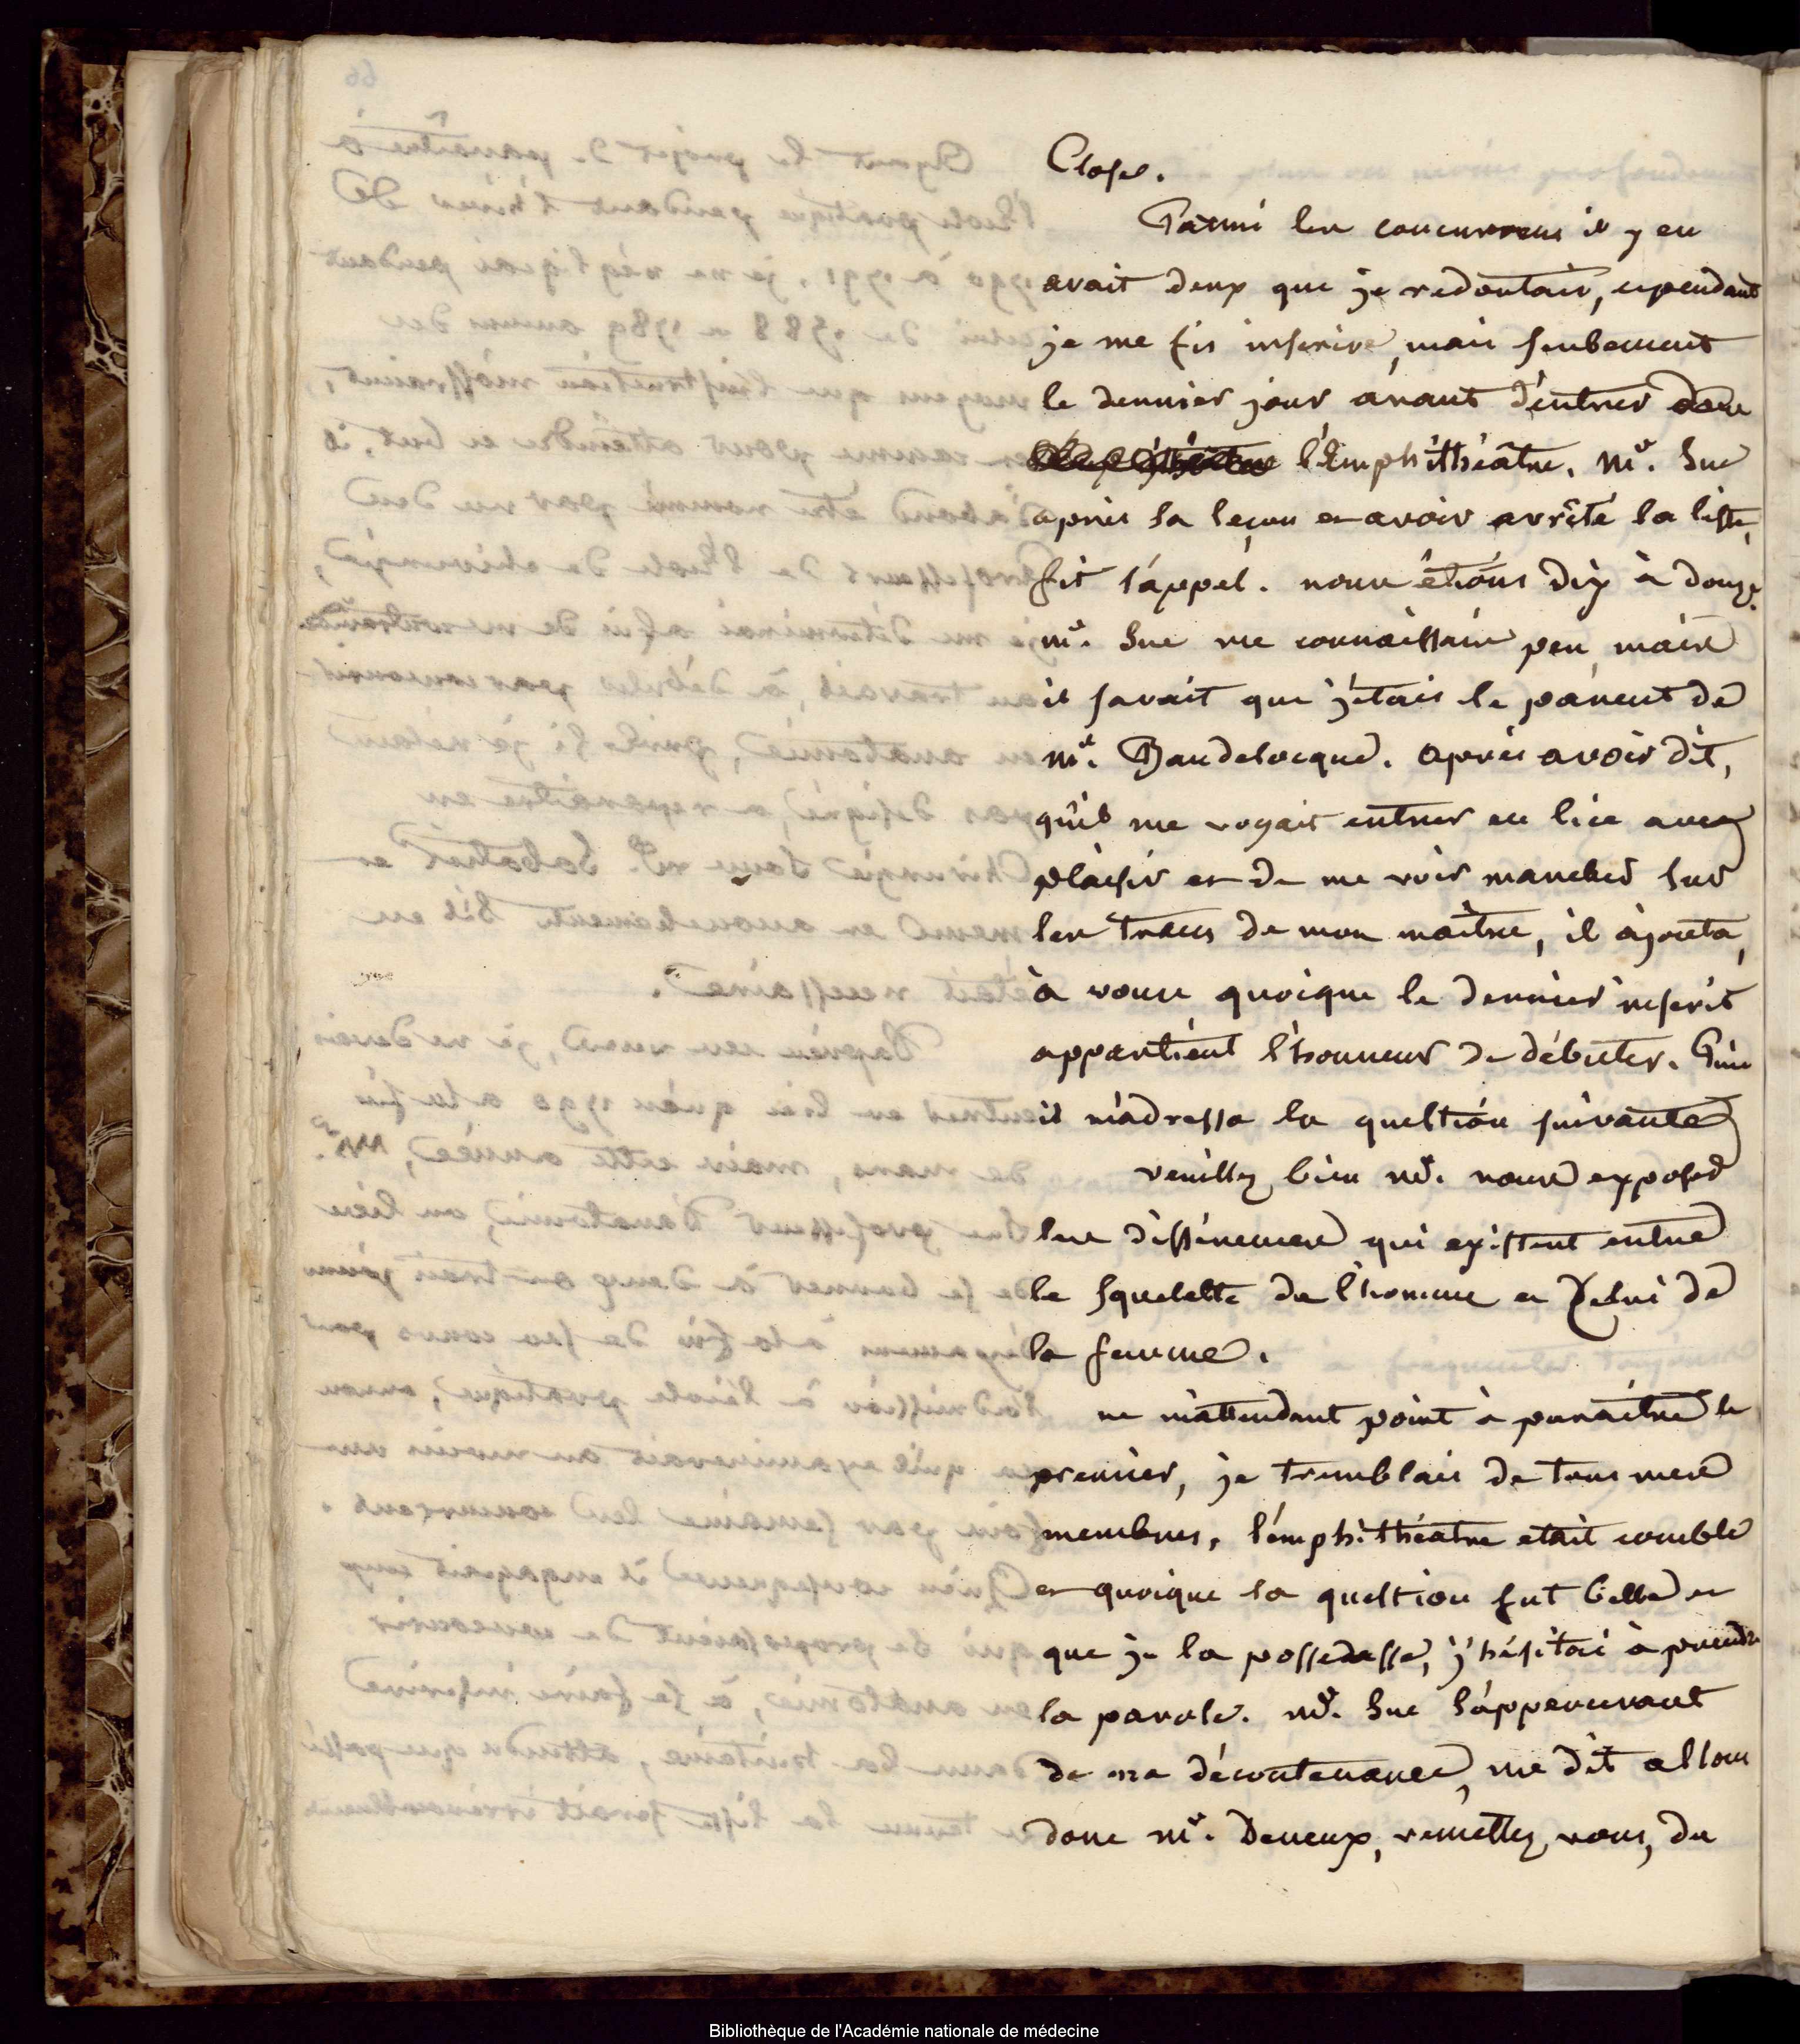 Close.
Parmi les concurrens il y en
avait deux que je redoutais, cependant
je me fis inscrire, mais seulement
le dernier jour avant d'entrer dans
l'emphithéâtre. Mr. Sue
après sa leçon et avoir arrêté la liste,
fit l'appel. nous étions dix à douze.
Mr. Sue me connaissait peu, mais
il savait que j'étais le parent de
Mr. Baudelocque. après avoir dit,
qu'il me voyait entrer en lice avec
plaisir et de me voir marcher sur
les traces de mon maître, il ajouta,
à vous quoique le dernier inscrit
appartient l'honneur de débuter. Puis
il m'adressa la question suivante
veuillez bien Mr. nous exposer
les différences qui existent entre
le squelette de l'homme et celui de
la femme.
ne m'attendant point à paraître le
premier, je tremblais de tous mes
membres, l'emphithéatre etait comble
et quoique la question fut belle et
que je la possedasse, j'hésitai à prendre
la parole. Mr. Sue s'appercevant
de ma décontenance, me dit allons
donc Mr. Deneux, remettez vous, du
Bibliothèque de l'Académie nationale de médecine